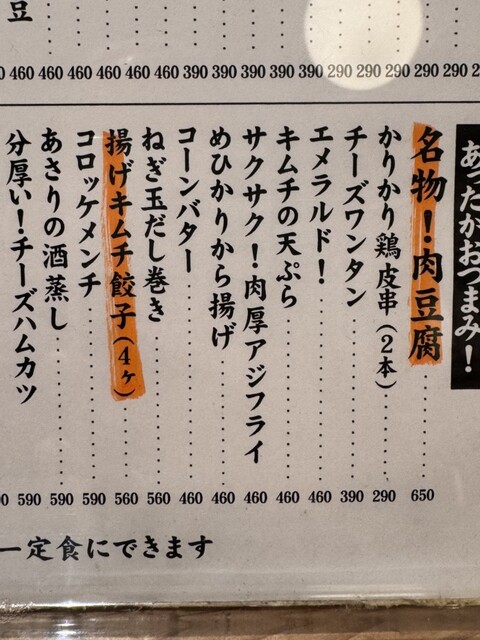 豆
460 460 460 460 460 460 390 390 390 390 390 290 290 290 290 290
あったかおつまみ！
名物！肉豆腐 650
かりかり鶏皮串(2本) 290
チーズワンタン 390
エメラルド！ 460
キムチの天ぷら 460
サクサク！肉厚アジフライ 460
めひかりから揚げ 460
コーンバター 460
ねぎ玉だし巻き 560
揚げキムチ餃子(4ヶ) 560
コロッケメンチ 590
あさりの酒蒸し 590
分厚い！チーズハムカツ 590
定食にできます